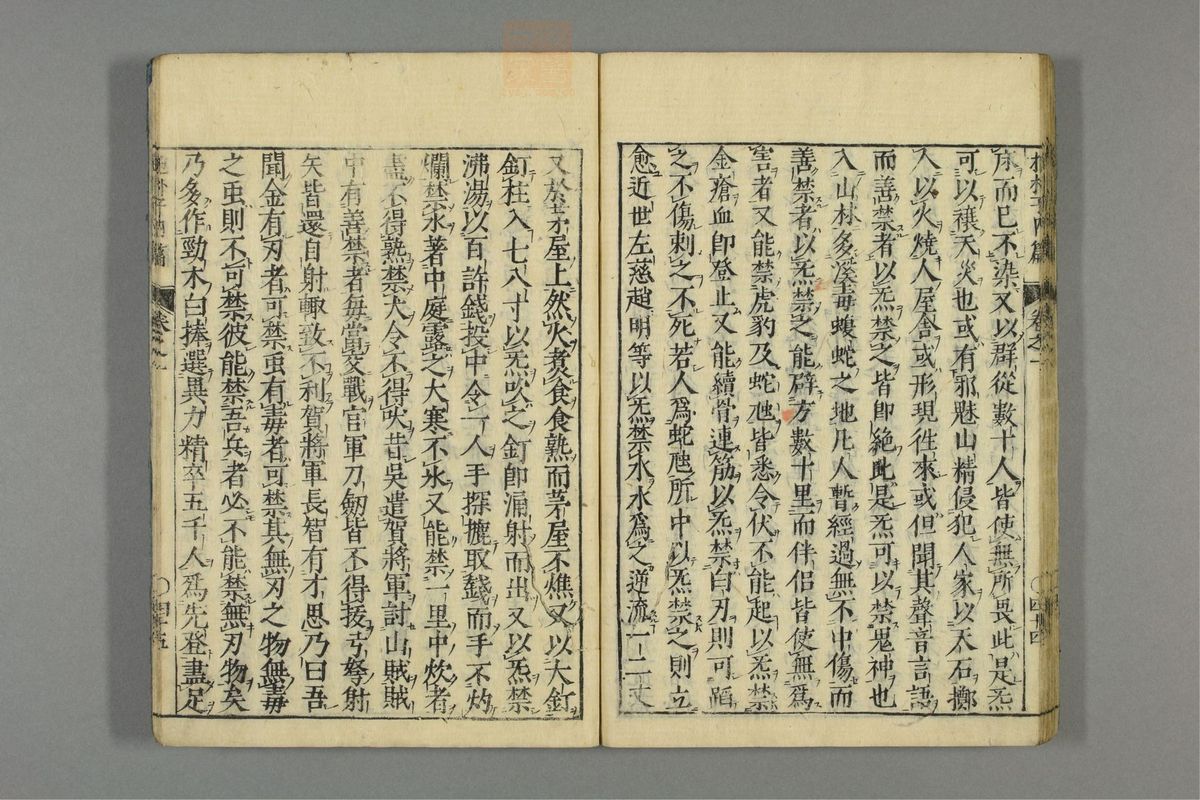 床而已不染又以群從數十人皆使無所畏此是炁
可以禳天災也或有邪魅山精侵犯人家以瓦石擲
人以火燒人屋舍或形現徃來或但聞其聲音言語
而善禁者以炁禁之皆卽絶此是炁可以禁鬼神也
入山林多溪毒蝮蛇之地凢人暫經過無不中傷而
善禁者以炁禁之能辟方數十里而伴侣皆使無爲
害者又能禁虎豹及蛇虺皆悉令伏不能起以炁禁
金瘡血卽登止又能續骨連筋以炁禁白刃則可蹈
之不傷刺之不死若人爲蛇虺所中以炁禁之則立
愈近世左慈趙明等以炁禁水水爲之逆流一二丈
又於茅屋上然火煮食食熟而茅屋不燋又以大釘
釘柱入七八寸以炁吹之釘卽涌射而出又以炁禁
沸湯以百許錢投中令一人手探摝取錢而手不灼
爛禁水著中庭露之大寒不氷又能禁一里中炊者
盡不得熟禁犬令不得吠昔吳遣賀將軍討山賊賊
中有善禁者每當交戰官軍刀劒皆不得拔弓弩射
矢皆還自射輙致不利賀將軍長智有才思乃曰吾
聞金有刃者可禁䖝有毒者可禁其無刃之物無毒
之䖝則不可禁彼能禁吾兵者必不能禁無刃物矣
乃多作勁木白捧選異力精卒五千人爲先登盡足